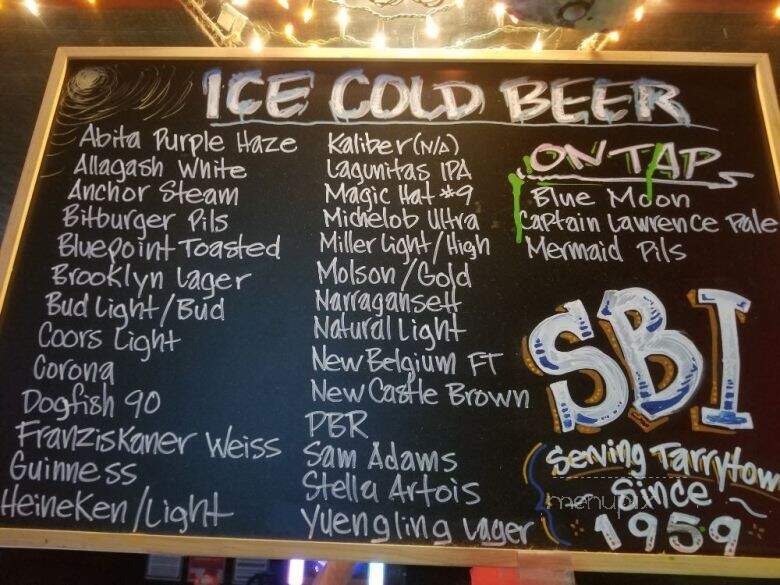 ICE COLD BEER
Abita Purple Haze
Allagash White
Anchor Steam
Bitburger Pils
Bluepoint Toasted
Brooklyn Lager
Bud Light/Bud
Coors Light
Corona
Dogfish 90
Franziskaner Weiss
Guinness
Heineken/Light
Kaliber (N/A)
Lagunitas IPA
Magic Hat #9
Michelob Ultra
Miller Light/High
Molson/Gold
Narragansett
Natural Light
New Belgium FT
New Castle Brown
PBR
Sam Adams
Stella Artois
Yuengling Lager
ON TAP
Blue Moon
Captain Lawrence Pale
Mermaid Pils
SBI
Serving Tarrytown
Since
1959
menupix